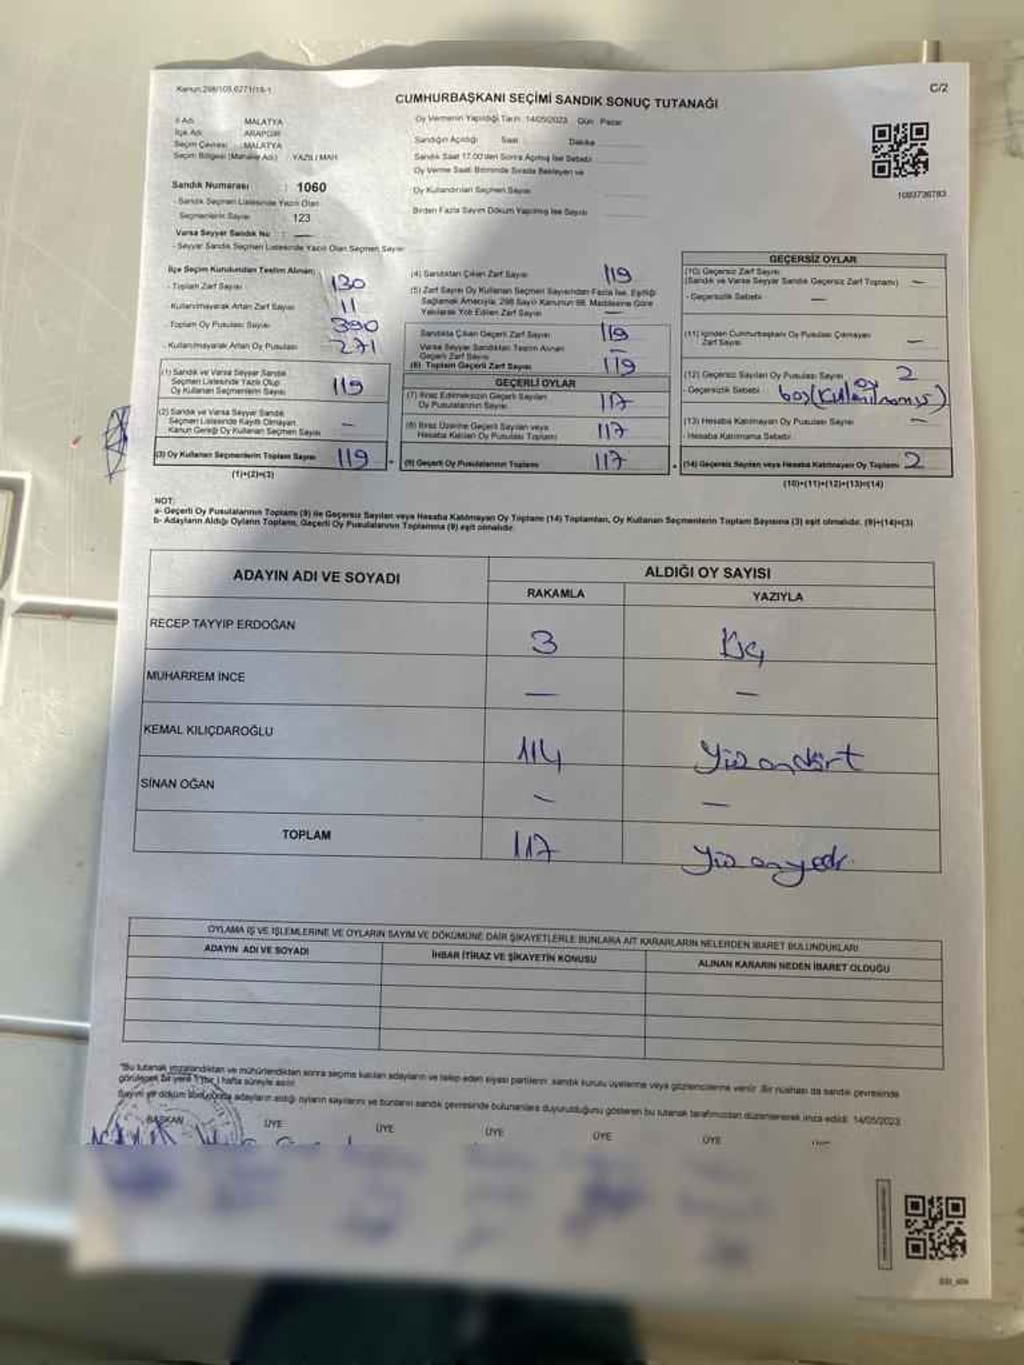 Kanun:298/105,6271/19-1
C/2
CUMHURBAŞKANI SEÇİMİ SANDIK SONUÇ TUTANAĞI
İl Adı : MALATYA
İlçe Adı : ARAPGİR
Seçim Çevresi : MALATYA
Seçim Bölgesi (Mahalle Adı) : YAZILI MAH.
Oy Vermenin Yapıldığı Tarih : 14/05/2023 Gün : Pazar
Sandığın Açıldığı Saat Dakika
Sandık Saat 17.00'den Sonra Açılmış İse Sebebi
Oy Verme Saati Bitiminde Sırada Bekleyen ve
Oy Kullandırılan Seçmen Sayısı
Birden Fazla Sayım Döküm Yapılmış İse Sayısı
1093736783
Sandık Numarası : 1060
- Sandık Seçmen Listesinde Yazılı Olan
Seçmenlerin Sayısı : 123
Varsa Seyyar Sandık No : —
- Seyyar Sandık Seçmen Listesinde Yazılı Olan Seçmen Sayısı
İlçe Seçim Kurulundan Teslim Alınan;
- Toplam Zarf Sayısı 130
- Kullanılmayarak Artan Zarf Sayısı 11
- Toplam Oy Pusulası Sayısı 390
- Kullanılmayarak Artan Oy Pusulası 271
(1) Sandık ve Varsa Seyyar Sandık
Seçmen Listesinde Yazılı Olup
Oy Kullanan Seçmenlerin Sayısı 119
(2) Sandık ve Varsa Seyyar Sandık
Seçmen Listesinde Kayıtlı Olmayan,
Kanun Gereği Oy Kullanan Seçmen Sayısı —
(3) Oy Kullanan Seçmenlerin Toplam Sayısı 119
(1)+(2)=(3)
(4) Sandıktan Çıkan Zarf Sayısı 119
(5) Zarf Sayısı Oy Kullanan Seçmen Sayısından Fazla İse, Eşitliği
Sağlamak Amacıyla, 298 Sayılı Kanunun 98. Maddesine Göre
Yakılarak Yok Edilen Zarf Sayısı —
Sandıkta Çıkan Geçerli Zarf Sayısı 119
Varsa Seyyar Sandıktan Teslim Alınan
Geçerli Zarf Sayısı —
(6) Toplam Geçerli Zarf Sayısı 119
GEÇERLİ OYLAR
(7) İtiraz Edilmeksizin Geçerli Sayılan
Oy Pusulalarının Sayısı 117
(8) İtiraz Üzerine Geçerli Sayılan veya
Hesaba Katılan Oy Pusulası Toplamı 117
(9) Geçerli Oy Pusulalarının Toplamı 117
GEÇERSİZ OYLAR
(10) Geçersiz Zarf Sayısı
(Sandık ve Varsa Seyyar Sandık Geçersiz Zarf Toplamı) —
- Geçersizlik Sebebi : —
(11) İçinden Cumhurbaşkanı Oy Pusulası Çıkmayan
Zarf Sayısı —
(12) Geçersiz Sayılan Oy Pusulası Sayısı 2
- Geçersizlik Sebebi : boş (kullanılmamış) oy
(13) Hesaba Katılmayan Oy Pusulası Sayısı —
- Hesaba Katılmama Sebebi :
(14) Geçersiz Sayılan veya Hesaba Katılmayan Oy Toplamı 2
(10)+(11)+(12)+(13)=(14)
NOT:
a- Geçerli Oy Pusulalarının Toplamı (9) ile Geçersiz Sayılan veya Hesaba Katılmayan Oy Toplamı (14) Toplamları, Oy Kullanan Seçmenlerin Toplam Sayısına (3) eşit olmalıdır. (9)+(14)=(3)
b- Adayların Aldığı Oyların Toplamı, Geçerli Oy Pusulalarının Toplamına (9) eşit olmalıdır.
ADAYIN ADI VE SOYADI ALDIĞI OY SAYISI
RAKAMLA YAZIYLA
RECEP TAYYİP ERDOĞAN 3 Üç
MUHARREM İNCE — —
KEMAL KILIÇDAROĞLU 114 Yüzondört
SİNAN OĞAN — —
TOPLAM 117 Yüz onyedi
OYLAMA İŞ VE İŞLEMLERİNE VE OYLARIN SAYIM VE DÖKÜMÜNE DAİR ŞİKAYETLERLE BUNLARA AİT KARARLARIN NELERDEN İBARET BULUNDUKLARI
ADAYIN ADI VE SOYADI İHBAR İTİRAZ VE ŞİKAYETİN KONUSU ALINAN KARARIN NEDEN İBARET OLDUĞU
*Bu tutanak imzalandıktan ve mühürlendikten sonra seçime katılan adayların ve talep eden siyasi partilerin sandık kurulu üyelerine veya gözlemcilerine verilir. Bir nüshası da sandık çevresinde
görülecek bir yere 1 (bir) hafta süreyle asılır.
Sayım ve döküm sonucunda adayların aldığı oyların sayılarını ve bunların sandık çevresinde bulunanlara duyurulduğunu gösteren bu tutanak tarafımızdan düzenlenerek imza edildi. 14/05/2023
BAŞKAN ÜYE ÜYE ÜYE ÜYE ÜYE